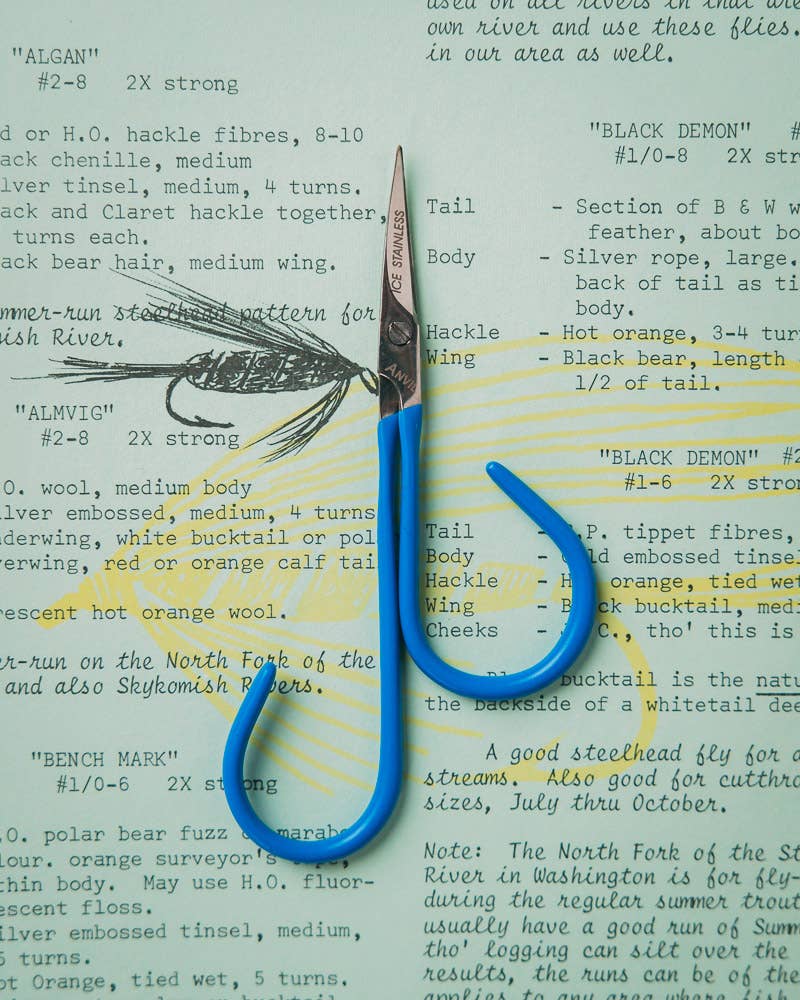 "ALGAN"
#2-8 2X strong
d or H.O. hackle fibres, 8-10
ack chenille, medium
lver tinsel, medium, 4 turns.
ack and Claret hackle together,
turns each.
ack bear hair, medium wing.
mmer-run steelhead pattern for
ish River.
"ALMVIG"
#2-8 2X strong
O. wool, medium body
lver embossed, medium, 4 turns
derwing, white bucktail or pol
erwing, red or orange calf tai
rescent hot orange wool.
er-run on the North Fork of the
and also Skykomish Rivers.
"BENCH MARK"
#1/0-6 2X strong
.O. polar bear fuzz marab
lour. orange surveyor's
thin body. May use H.O. fluor-
escent floss.
ilver embossed tinsel, medium,
5 turns.
ot Orange, tied wet, 5 turns.
ICE STAINLESS
ANVIL
used on all rivers in that are
own river and use these flies.
in our area as well.
"BLACK DEMON" #
#1/0-8 2X str
Tail - Section of B & W w
feather, about bo
Body - Silver rope, large.
back of tail as ti
body.
Hackle - Hot orange, 3-4 tur
Wing - Black bear, length
1/2 of tail.
"BLACK DEMON" #2
#1-6 2X stron
Tail - .P. tippet fibres,
Body - ld embossed tinsel
Hackle - H orange, tied wet
Wing - B ck bucktail, medi
Cheeks - C., tho' this is
bucktail is the natu
the backside of a whitetail dee
A good steelhead fly for a
streams. Also good for cutthro
sizes, July thru October.
Note: The North Fork of the St
River in Washington is for fly-
during the regular summer trout
usually have a good run of Summ
tho' logging can silt over the
results, the runs can be of the
applies to any area where fish